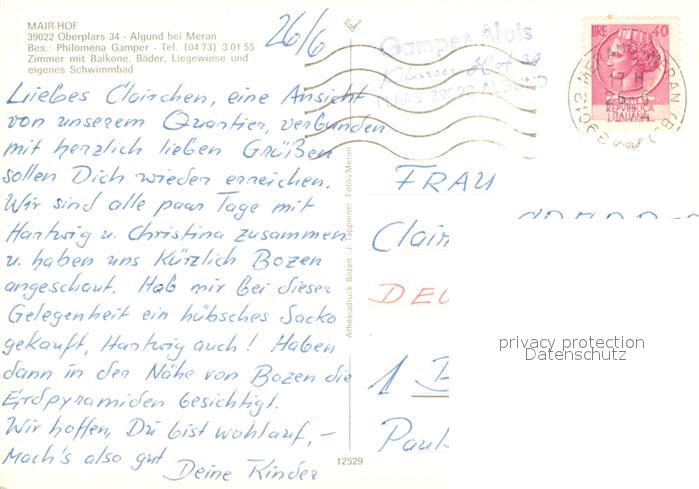 MAIR-HOF
39022 Oberplars 34 - Algund bei Meran
Bes.: Philomena Gamper - Tel. (04 73) 3 01 55
Zimmer mit Balkone, Bäder, Liegewiese und
eigenes Schwimmbad
26/6
Liebes Clairchen, eine Ansicht
von unserem Quartier, verbunden
mit herzlich lieben Grüßen
sollen Dich wieder erreichen.
Wir sind alle paar Tage mit
Hartwig u. Christina zusammen
u. haben uns kürzlich Bozen
angeschaut. Hab mir bei dieser
Gelegenheit ein hübsches Sacko
gekauft, Hartwig auch! Haben
dann in der Nähe von Bozen die
Erdpyramiden besichtigt.
Wir hoffen, Du bist wohlauf, –
Mach's also gut
Deine Kinder
Athesiadruck Bozen - J. Tappeiner Foto - Meran
12529
Gamper Alois
PLARS 39022 ALGUND
LIRE 40
REPVBBLICA
ITALIANA
39012 MERANO MERAN (BZ)
FRAU
Clair
DEU
1 B
Paul
privacy protection
Datenschutz